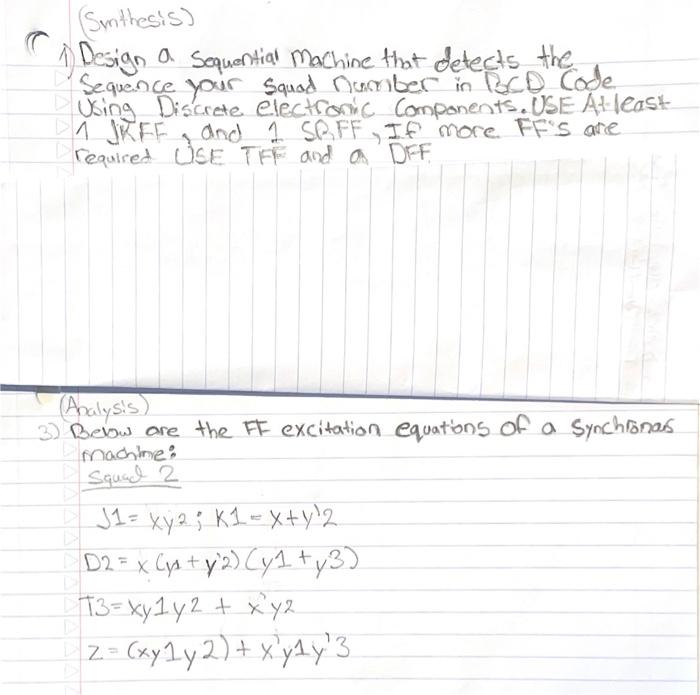 (Synthesis)
1) Design a Sequential Machine that detects the
Sequence your squad number in BCD Code
Using Discrete electronic Components. USE At least
1 JKFF, and 1 SRFF, If more FF's are
required USE TFF and a DFF
(Analysis)
3) Below are the FF excitation equations of a Synchronas
machine:
Squad 2
J1 = xy2; K1 = x+y'2
D2 = x (y1 + y'2) (y1 + y3)
T3 = xy1y2 + x'y2
z = (xy1y2) + x'y1y'3